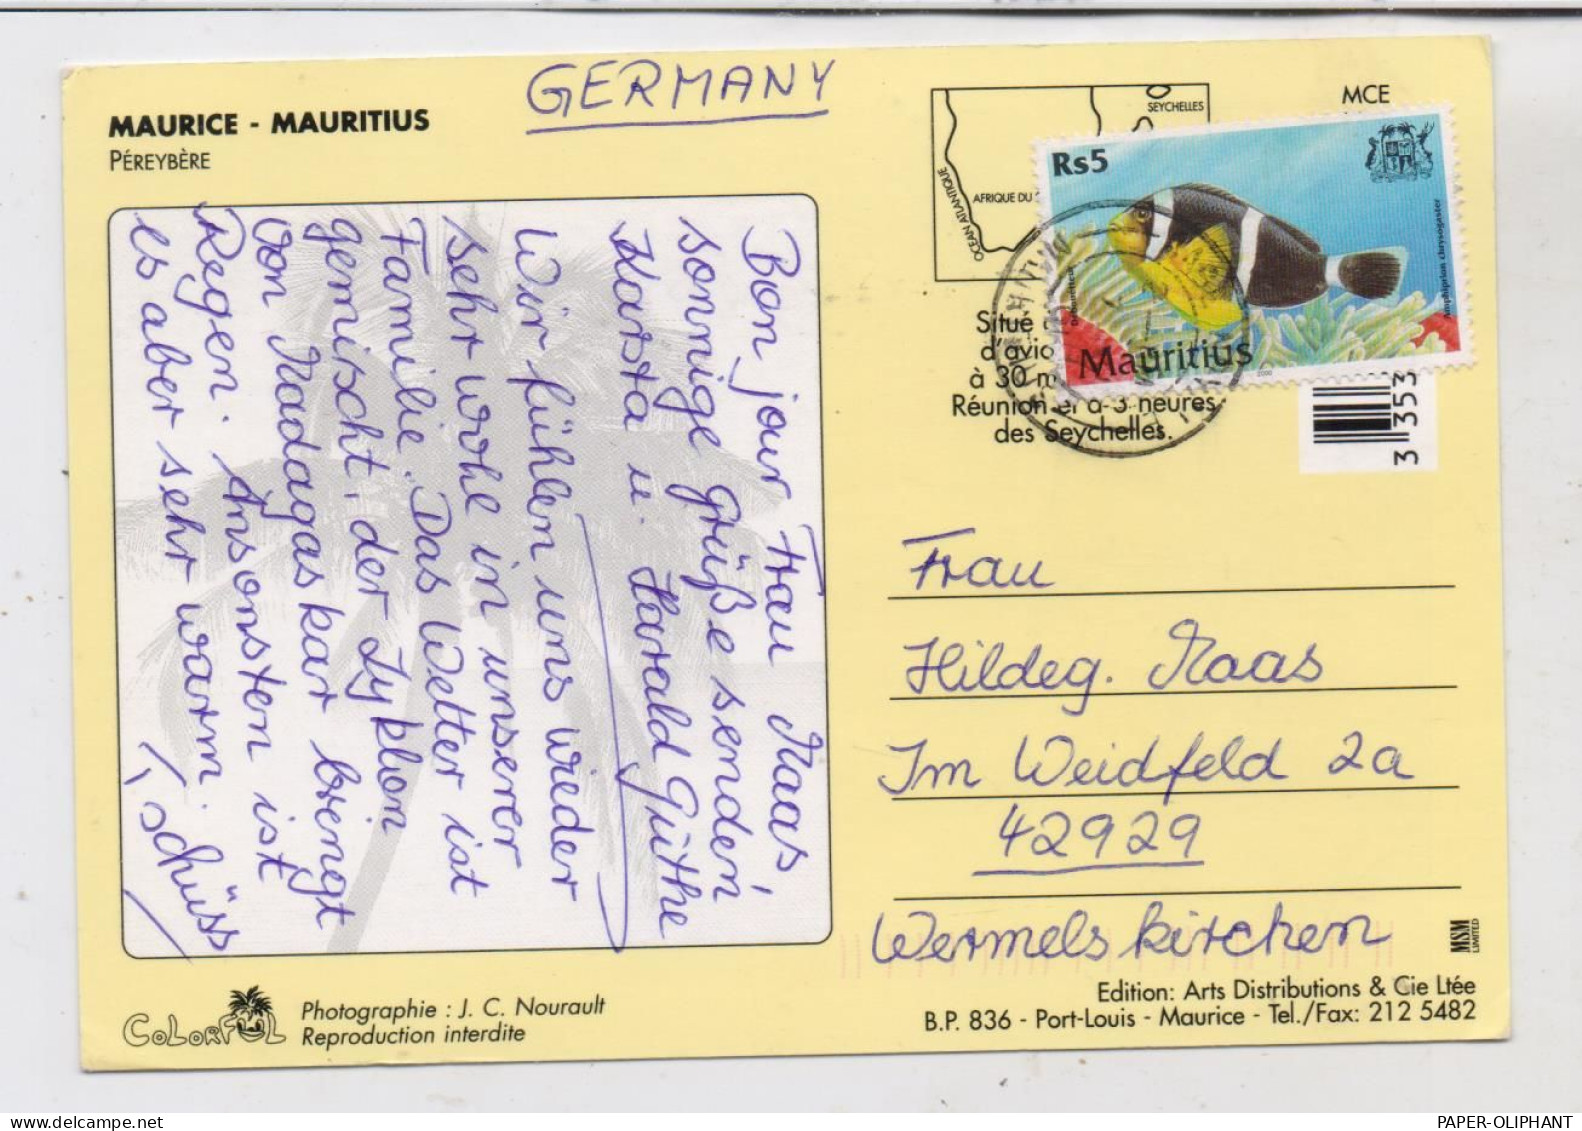 MAURICE - MAURITIUS
PÉREYBÈRE
GERMANY
Bon jour Frau Maas,
sonnige Grüße senden
Karsta u. Harald Güthe
Wir fühlen uns wieder
sehr wohl in unserer
Familie. Das Wetter ist
gemischt, der Zyklon
von Madagaskar bringt
Regen. Ansonsten ist
es aber sehr warm.
Tschüss
SEYCHELLES
OCÉAN ATLANTIQUE
AFRIQUE DU
MCE
Rs5
Amphiprion chrysogaster
Mauritius
2000
Situé
d'avio
à 30 m
Réunion et à 3 heures
des Seychelles.
3 353
Frau
Hildeg. Maas
Im Weidfeld 2a
42929
Wermelskirchen
MSM
LIMITED
COLORFUL
Photographie : J. C. Nourault
Reproduction interdite
Edition: Arts Distributions & Cie Ltée
B.P. 836 - Port-Louis - Maurice - Tel./Fax: 212 5482
PAPER-OLIPHANT